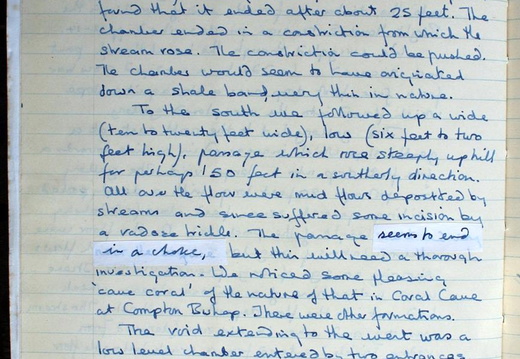 found that it ended after about 25 feet. The
chamber ended in a constriction from which the
stream rose. The constriction could be pushed.
The chamber would seem to have originated
down a shale band, very thin in nature.
To the south we followed up a wide
(ten to twenty feet wide), low (six feet to two
feet high), passage which rose steeply up hill
for perhaps 150 feet in a southerly direction.
All over the floor were mud flows deposited by
streams and since suffered some incision by
a vadose trickle. The passage seems to end
in a choke, but this will need a thorough
investigation. We noticed some pleasing
'cave coral' of the nature of that in Coral Cave
at Compton Bishop. There were other formations.
The void extending to the west was a
low level chamber entered by two entrances